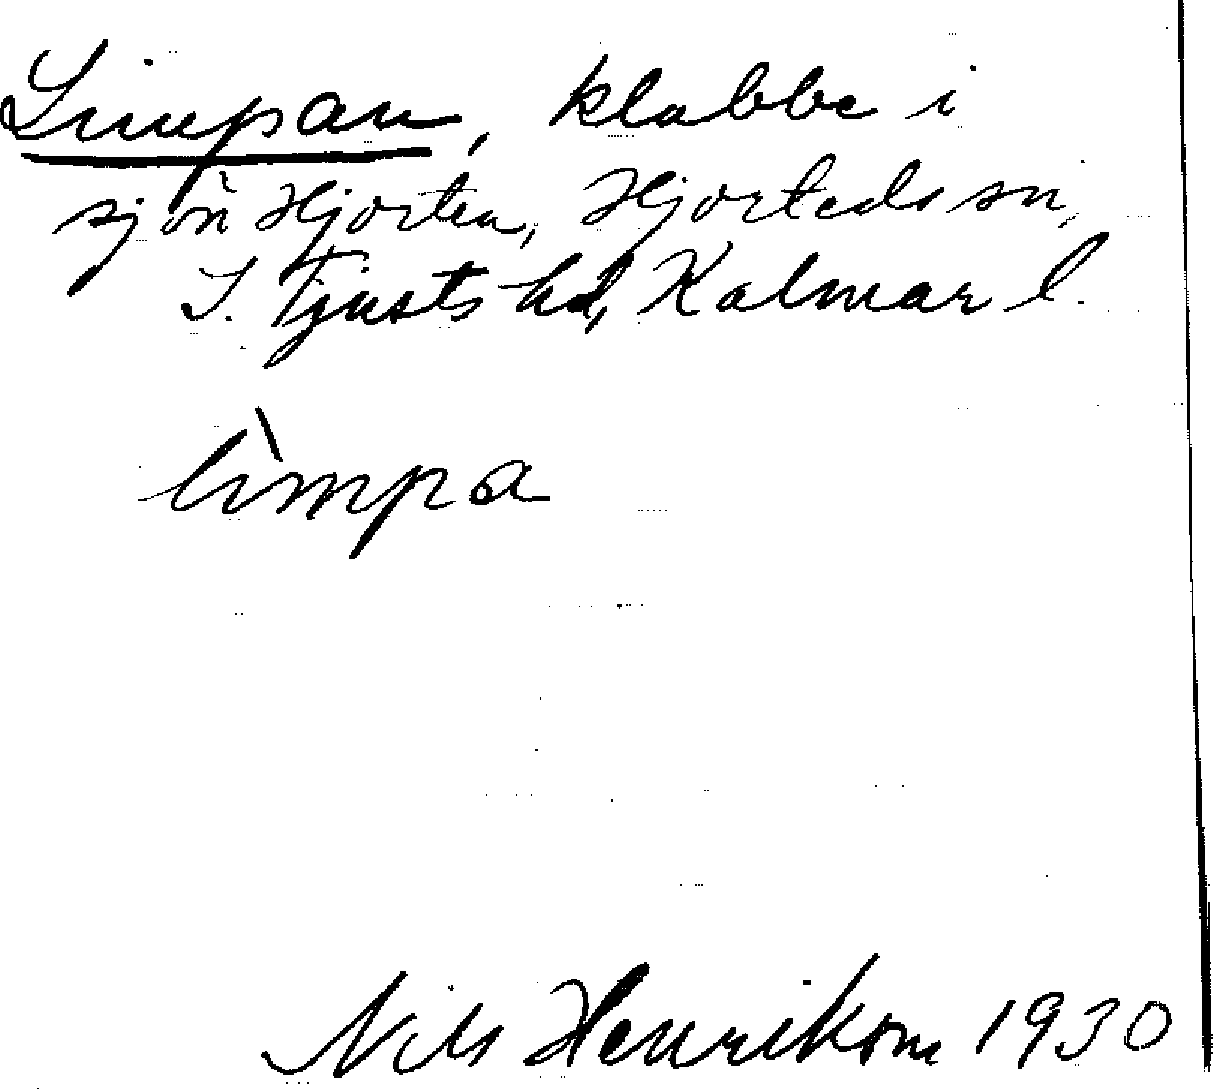 Limpan, klabbe i
sjön Hjorten, Hjorteds sn,
S. Tjusts hd, Kalmar l.
lìmpa
Nils Henrikson 1930